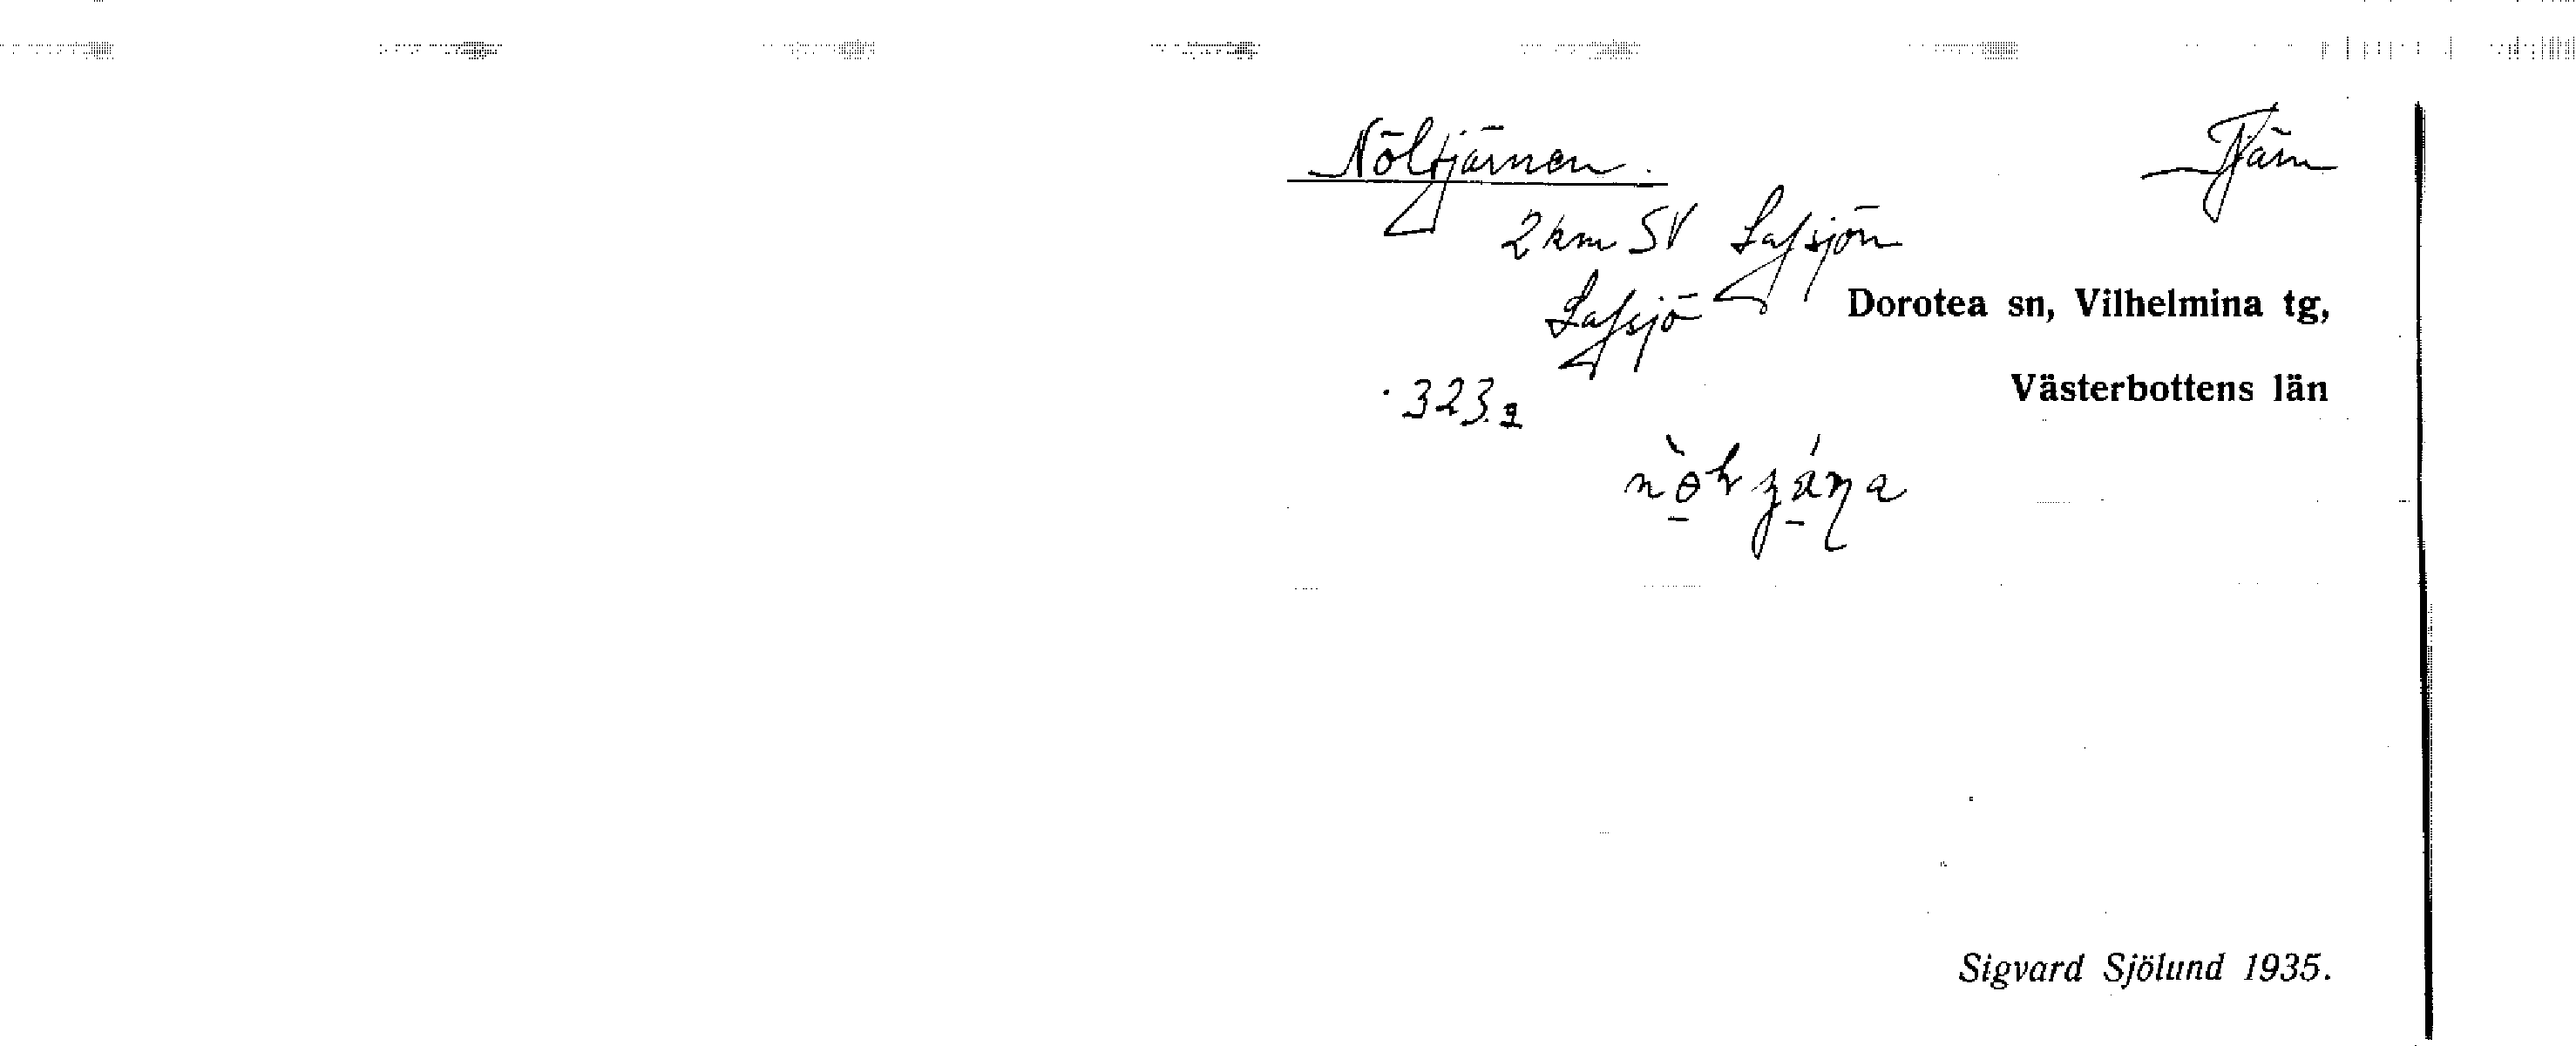 Nöltjärnen. Tjärn
2 km SV Lafsjön
Lafsjö Dorotea sn, Vilhelmina tg,
323. Västerbottens län
Sigvard Sjölund 1935.